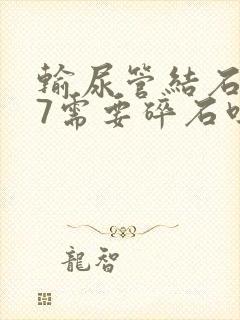 輸尿管結石
7需要碎石
龍智